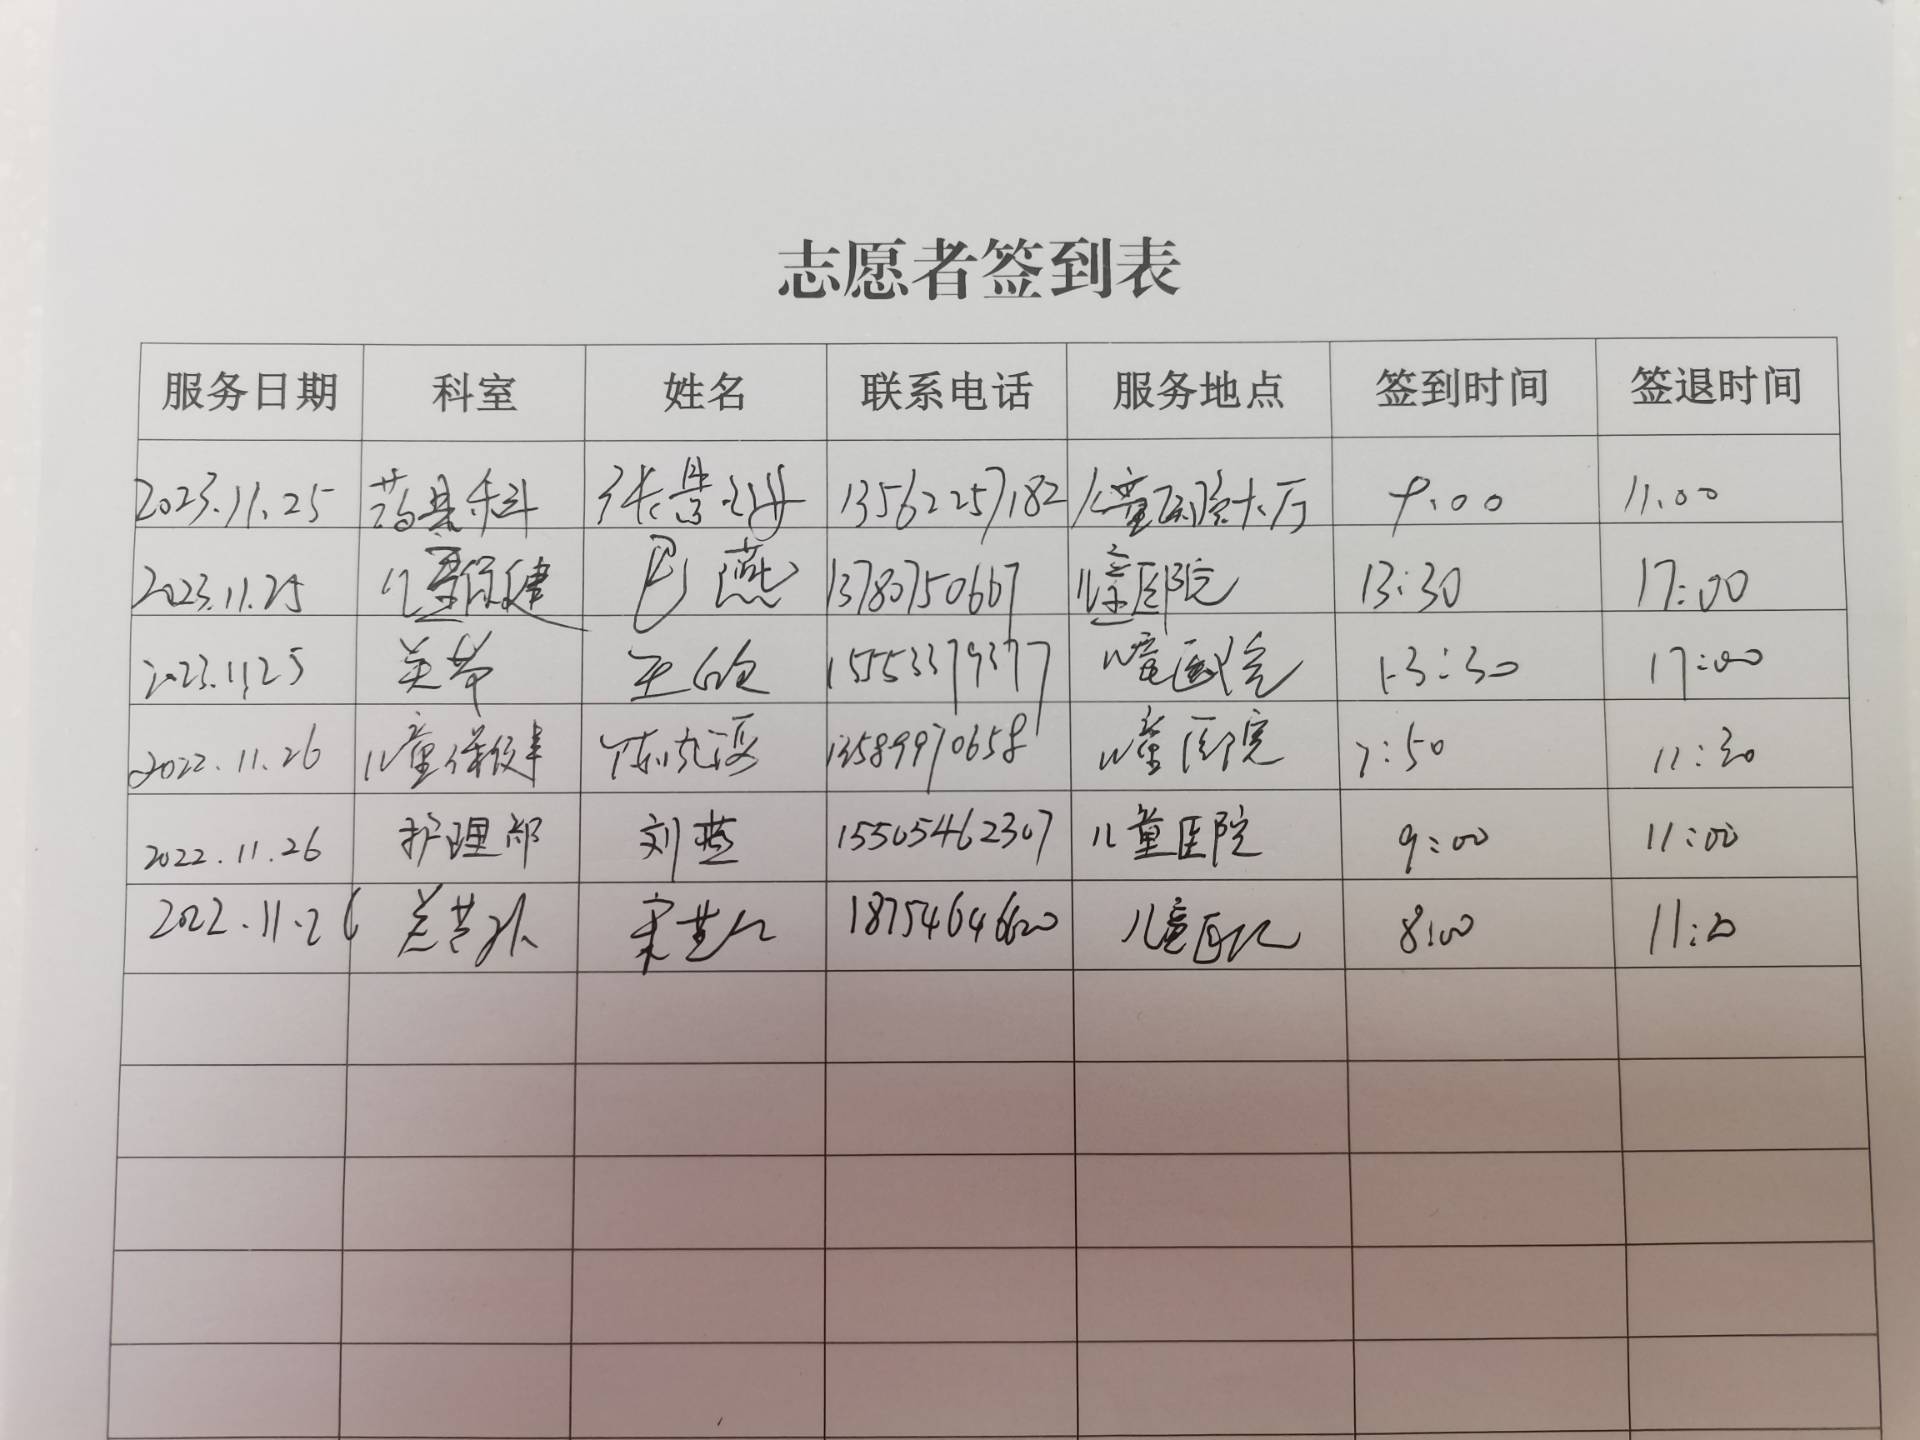 志愿者签到表
服务日期 科室 姓名 联系电话 服务地点 签到时间 签退时间
2023.11.25 药具科 张景海 13562257182 儿童医院大厅 9:00 11:00
2023.11.25 儿童保健 巴燕 13780750667 儿童医院 13:30 17:00
2023.11.25 关节 王 15553379377 儿童医院 13:30 17:00
2022.11.26 儿童保健 13589970658 儿童医院 7:50 11:30
2022.11.26 护理部 刘燕 15505462307 儿童医院 9:00 11:00
2022.11.26 宋 18754646620 儿童医院 8:00